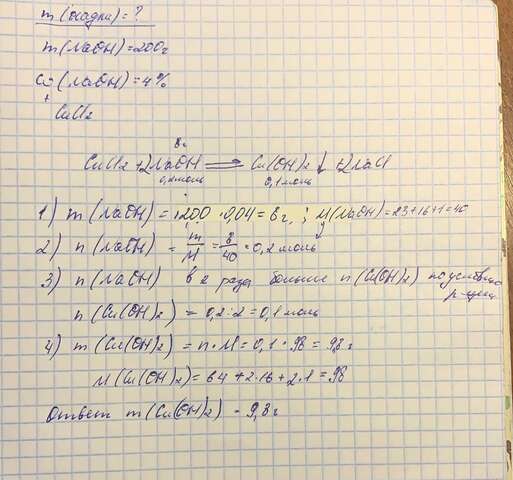 m(осадка) = ?
m(NaOH) = 200г
ω(NaOH) = 4%
+
CuCl2
8г
CuCl2 + 2NaOH ⇒ Cu(OH)2↓ + 2NaCl
0,2моль 0,1моль
1) m(NaOH) = 200 · 0,04 = 8г, ; M(NaOH) = 23+16+1=40
2) n(NaOH) = m/M = 8/40 = 0,2 моль
3) n(NaOH) в 2 раза больше n(Cu(OH)2) по условию
р-ции
n(Cu(OH)2) = 0,2:2 = 0,1 моль
4) m(Cu(OH)2) = n · M = 0,1 · 98 = 9,8г
M(Cu(OH)2) = 64 + 2·16 + 2·1 = 98
Ответ m(Cu(OH)2) - 9,8г